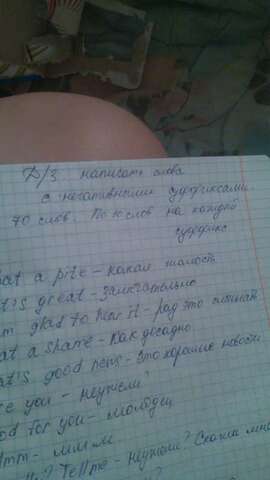 Д/З написать слова
с негативными суффиксами.
70 слов. По 10 слов на каждый
суффикс
at a pite – какая жалость
t's great – замечательно
m glad to hear it – рад это слышать
at a shame – как досадно
at's good news – это хорошие новости
re you – неужели?
od for you – молодец
mm – м м м
Tell me – неужели? Скажи мне